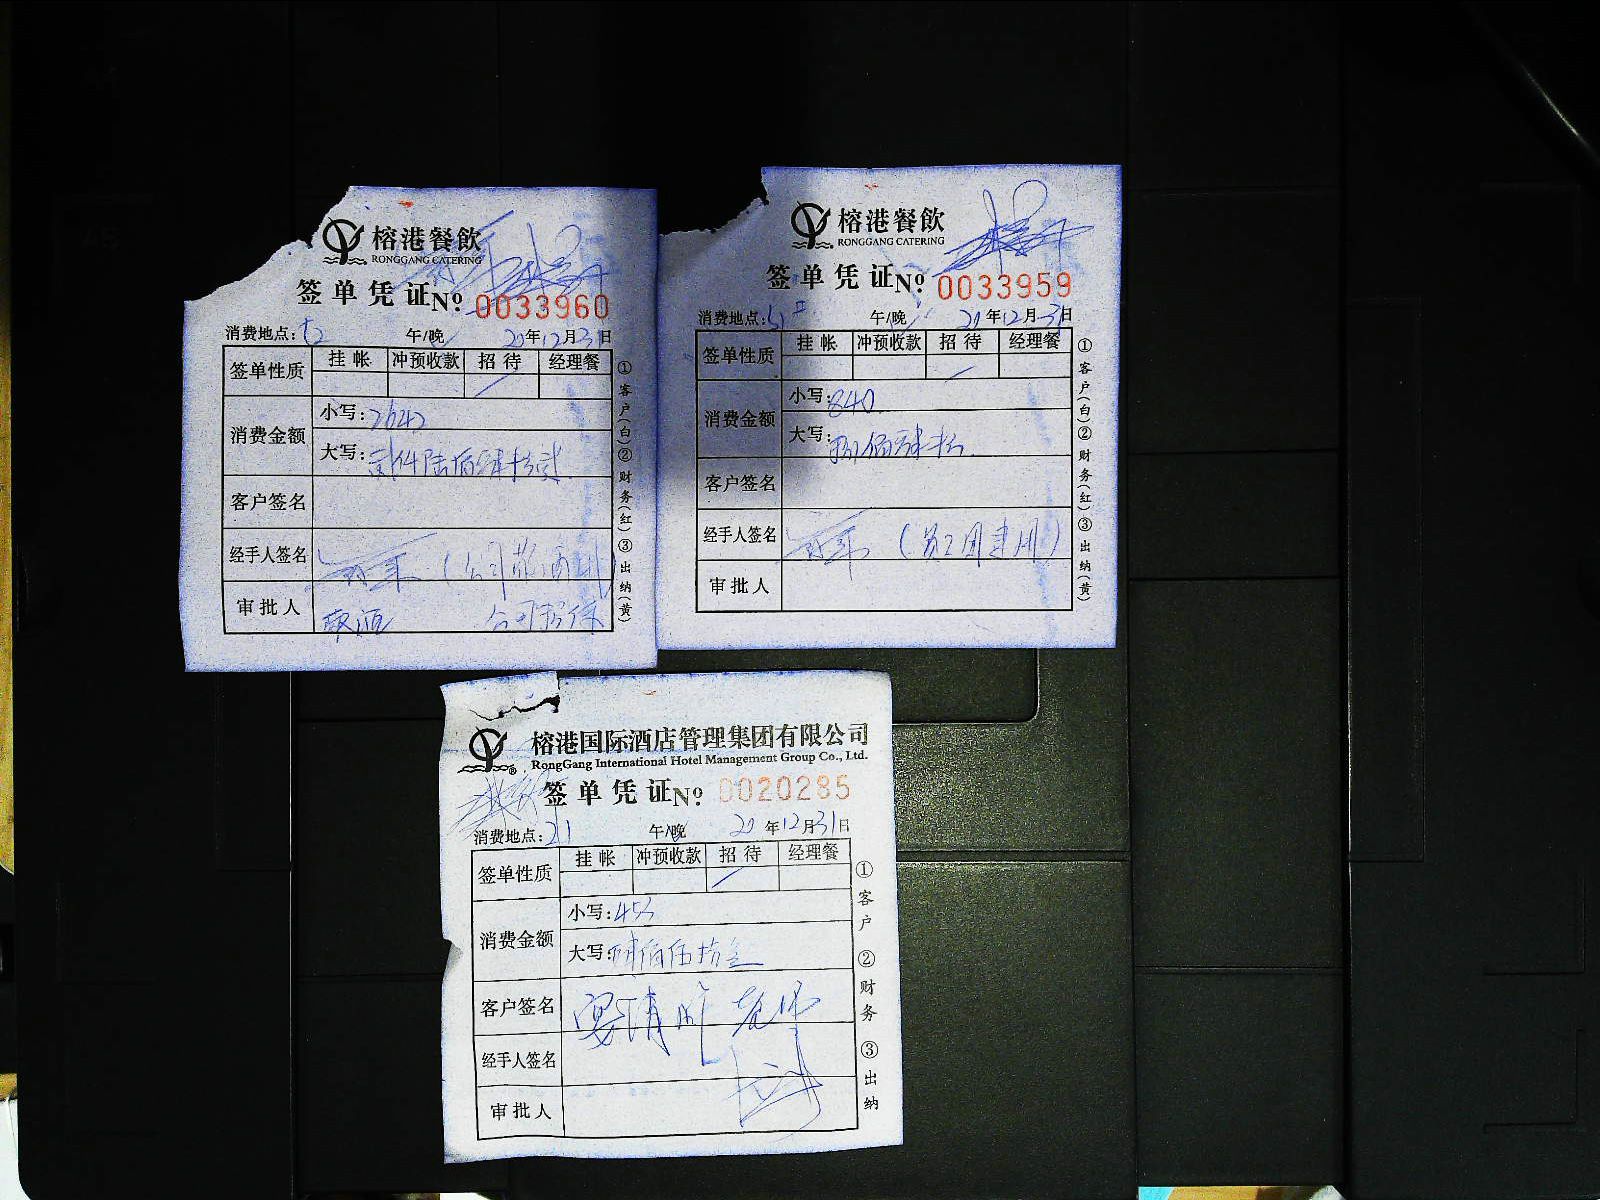 榕港餐飲
RONGGANG CATERING
签单凭证№ 0033960
消费地点: 午/晚 20年12月31日
签单性质 挂帐 冲预收款 招待 经理餐
消费金额
小写:2642
大写:贰仟陆佰肆拾贰
客户签名
经手人签名
审批人 公司招待
①客户(白)②财务(红)③出纳(黄)
榕港餐飲
RONGGANG CATERING
签单凭证№ 0033959
消费地点: 午/晚 20年12月31日
签单性质 挂帐 冲预收款 招待 经理餐
消费金额
小写:840
大写:捌佰肆拾
客户签名
经手人签名 (员工团建用)
审批人
①客户(白)②财务(红)③出纳(黄)
榕港国际酒店管理集团有限公司
RongGang International Hotel Management Group Co., Ltd.
签单凭证№ 0020285
消费地点:211 午/晚 20年12月31日
签单性质 挂帐 冲预收款 招待 经理餐
消费金额
小写:453
大写:肆佰伍拾叁
客户签名 宴请
经手人签名
审批人
①客户 ②财务 ③出纳